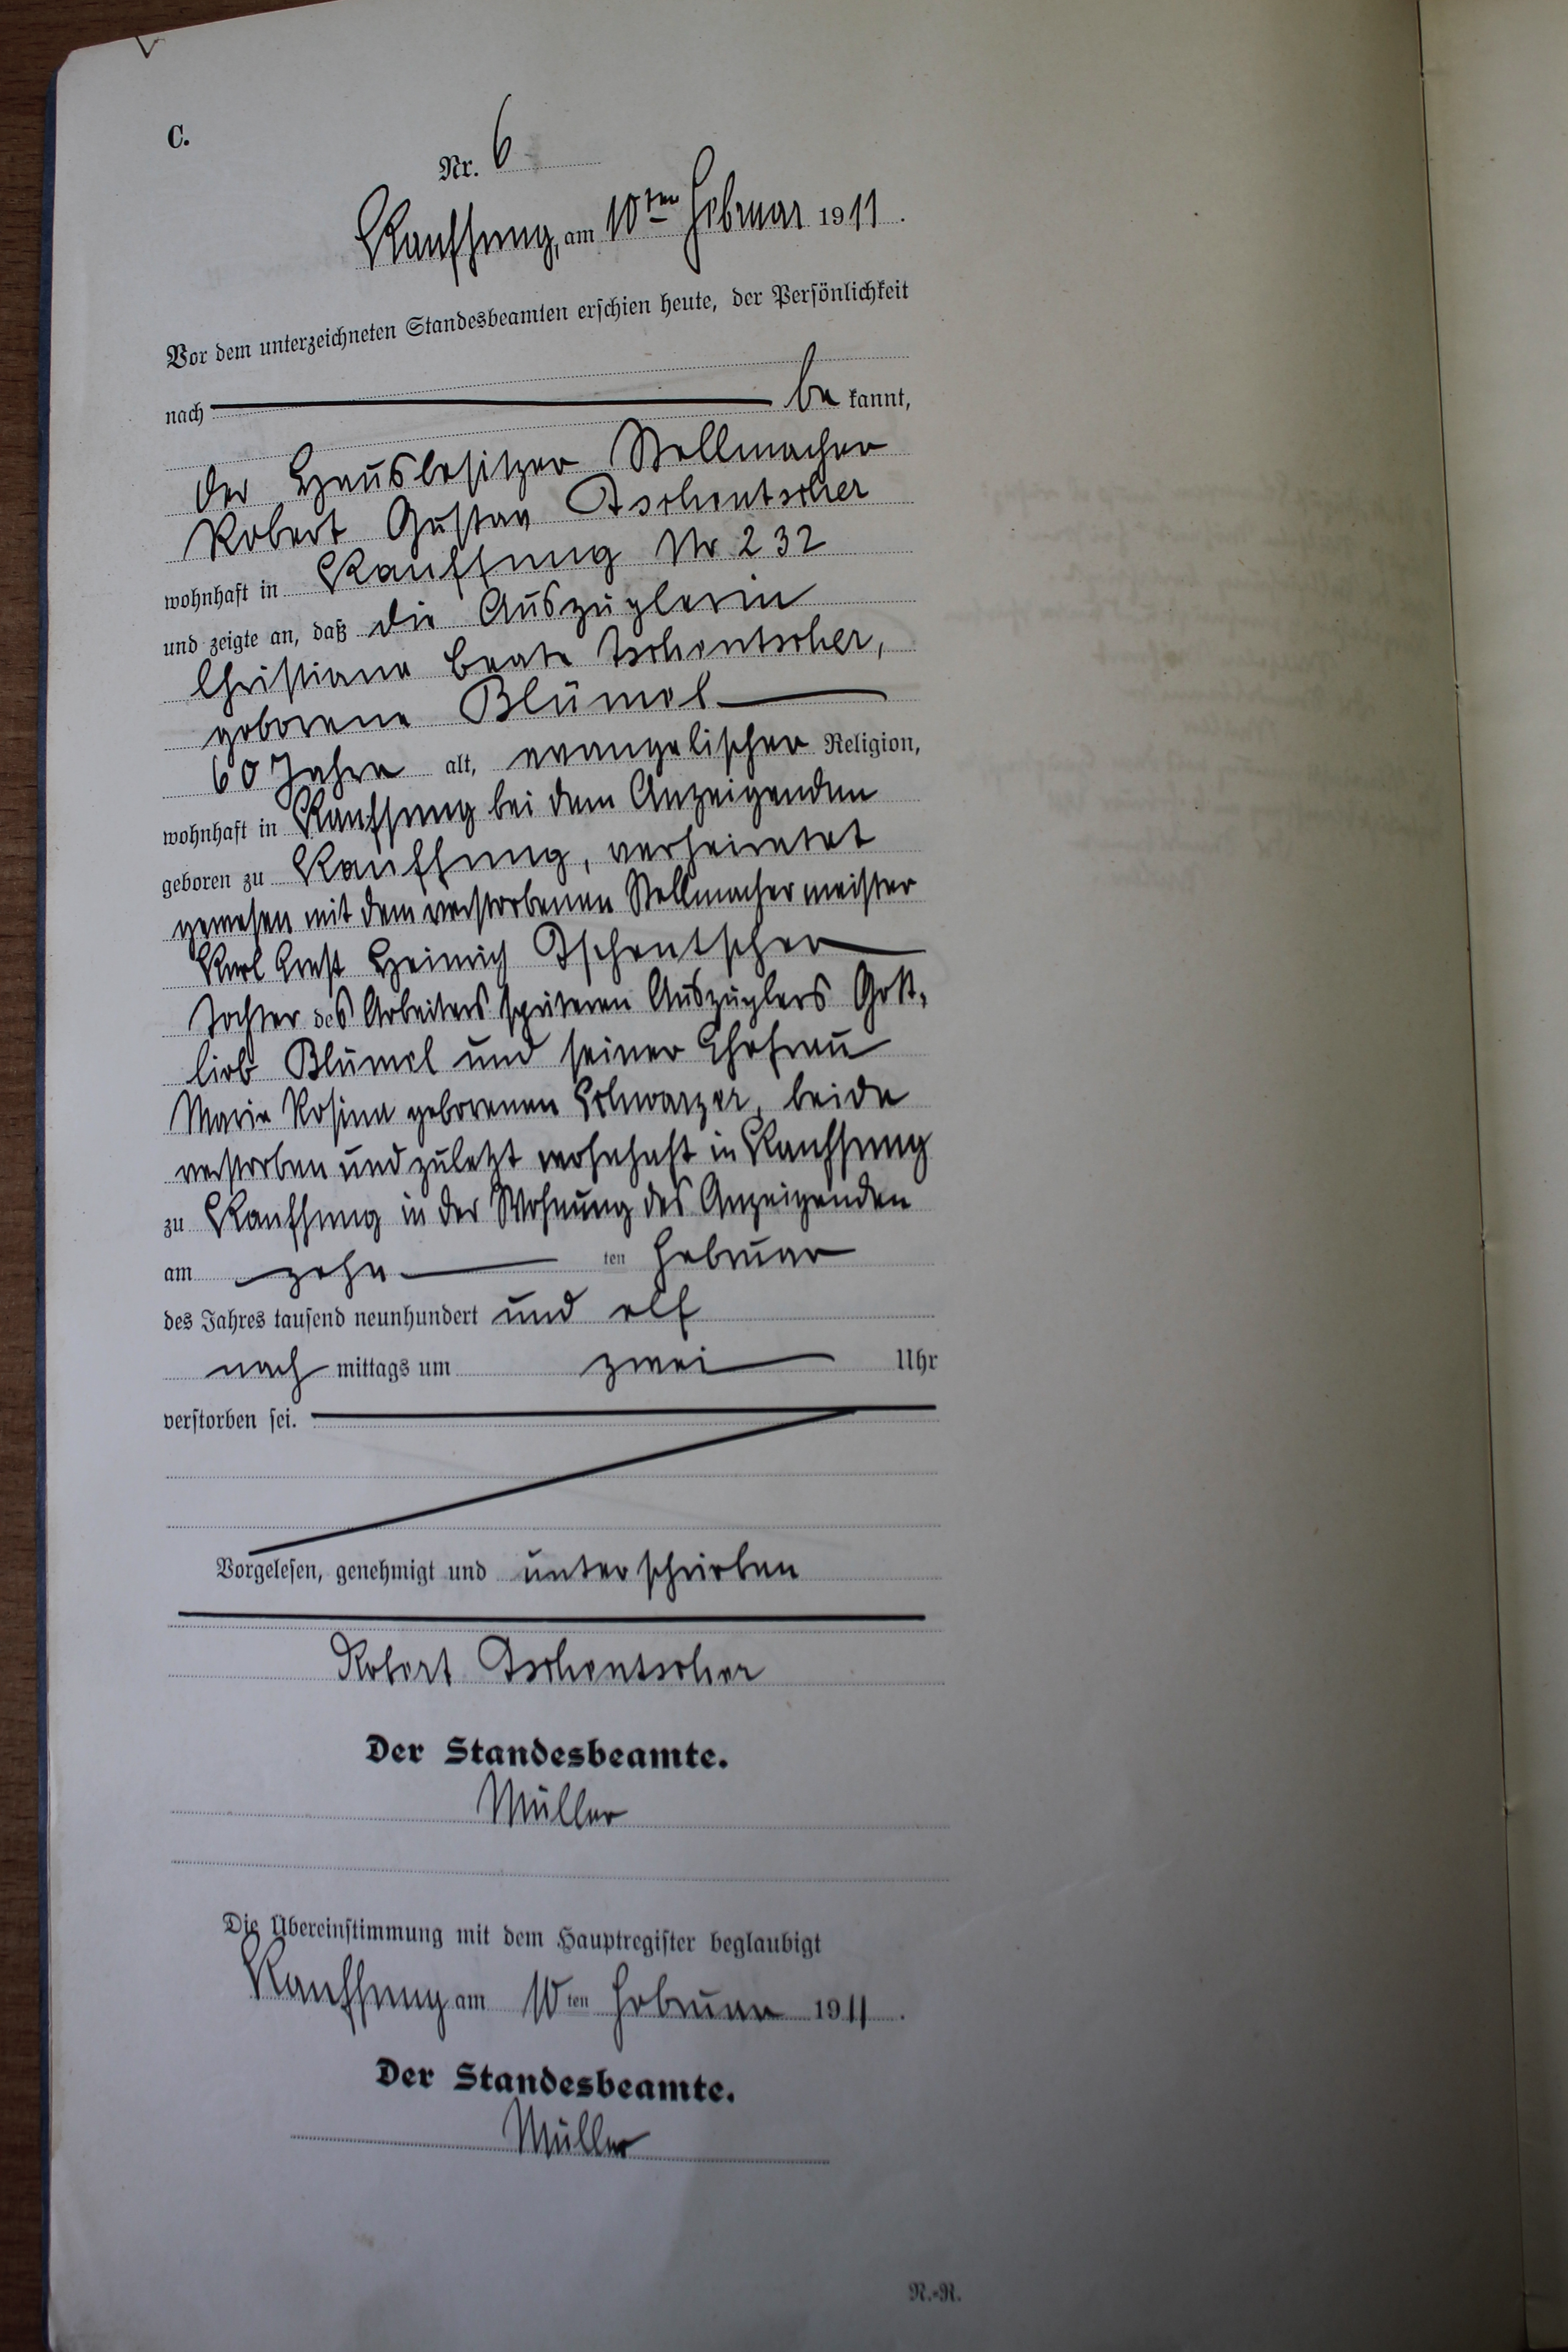 C.
Nr. 6
Kauffung, am 10ten Februar 1911.
Vor dem unterzeichneten Standesbeamten erschien heute, der Persönlichkeit
nach be kannt,
der Hausbesitzer Stellmacher
Robert Gustav Tschentscher
wohnhaft in Kauffung Nr 232
und zeigte an, daß die Auszüglerin
Christiane Beate Tschentscher,
geborene Blümel
60 Jahre alt, evangelischer Religion,
wohnhaft in Kauffung bei dem Anzeigenden
geboren zu Kauffung, verheiratet
gewesen mit dem verstorbenen Stellmachermeister
Karl Ernst Heinrich Tschentscher
Tochter des Arbeiters späteren Auszüglers Gott,
lieb Blümel und seiner Ehefrau
Marie Rosina geborenen Schwarzer, beide
verstorben und zuletzt wohnhaft in Kauffung
zu Kauffung in der Wohnung des Anzeigenden
am zehn ten Februar
des Jahres tausend neunhundert und elf
nach mittags um zwei Uhr
verstorben sei.
Vorgelesen, genehmigt und unterschrieben
Robert Tschentscher
Der Standesbeamte.
Müller
Die Übereinstimmung mit dem Hauptregister beglaubigt
Kauffung am 10ten Februar 1911.
Der Standesbeamte.
Müller
R.-R.